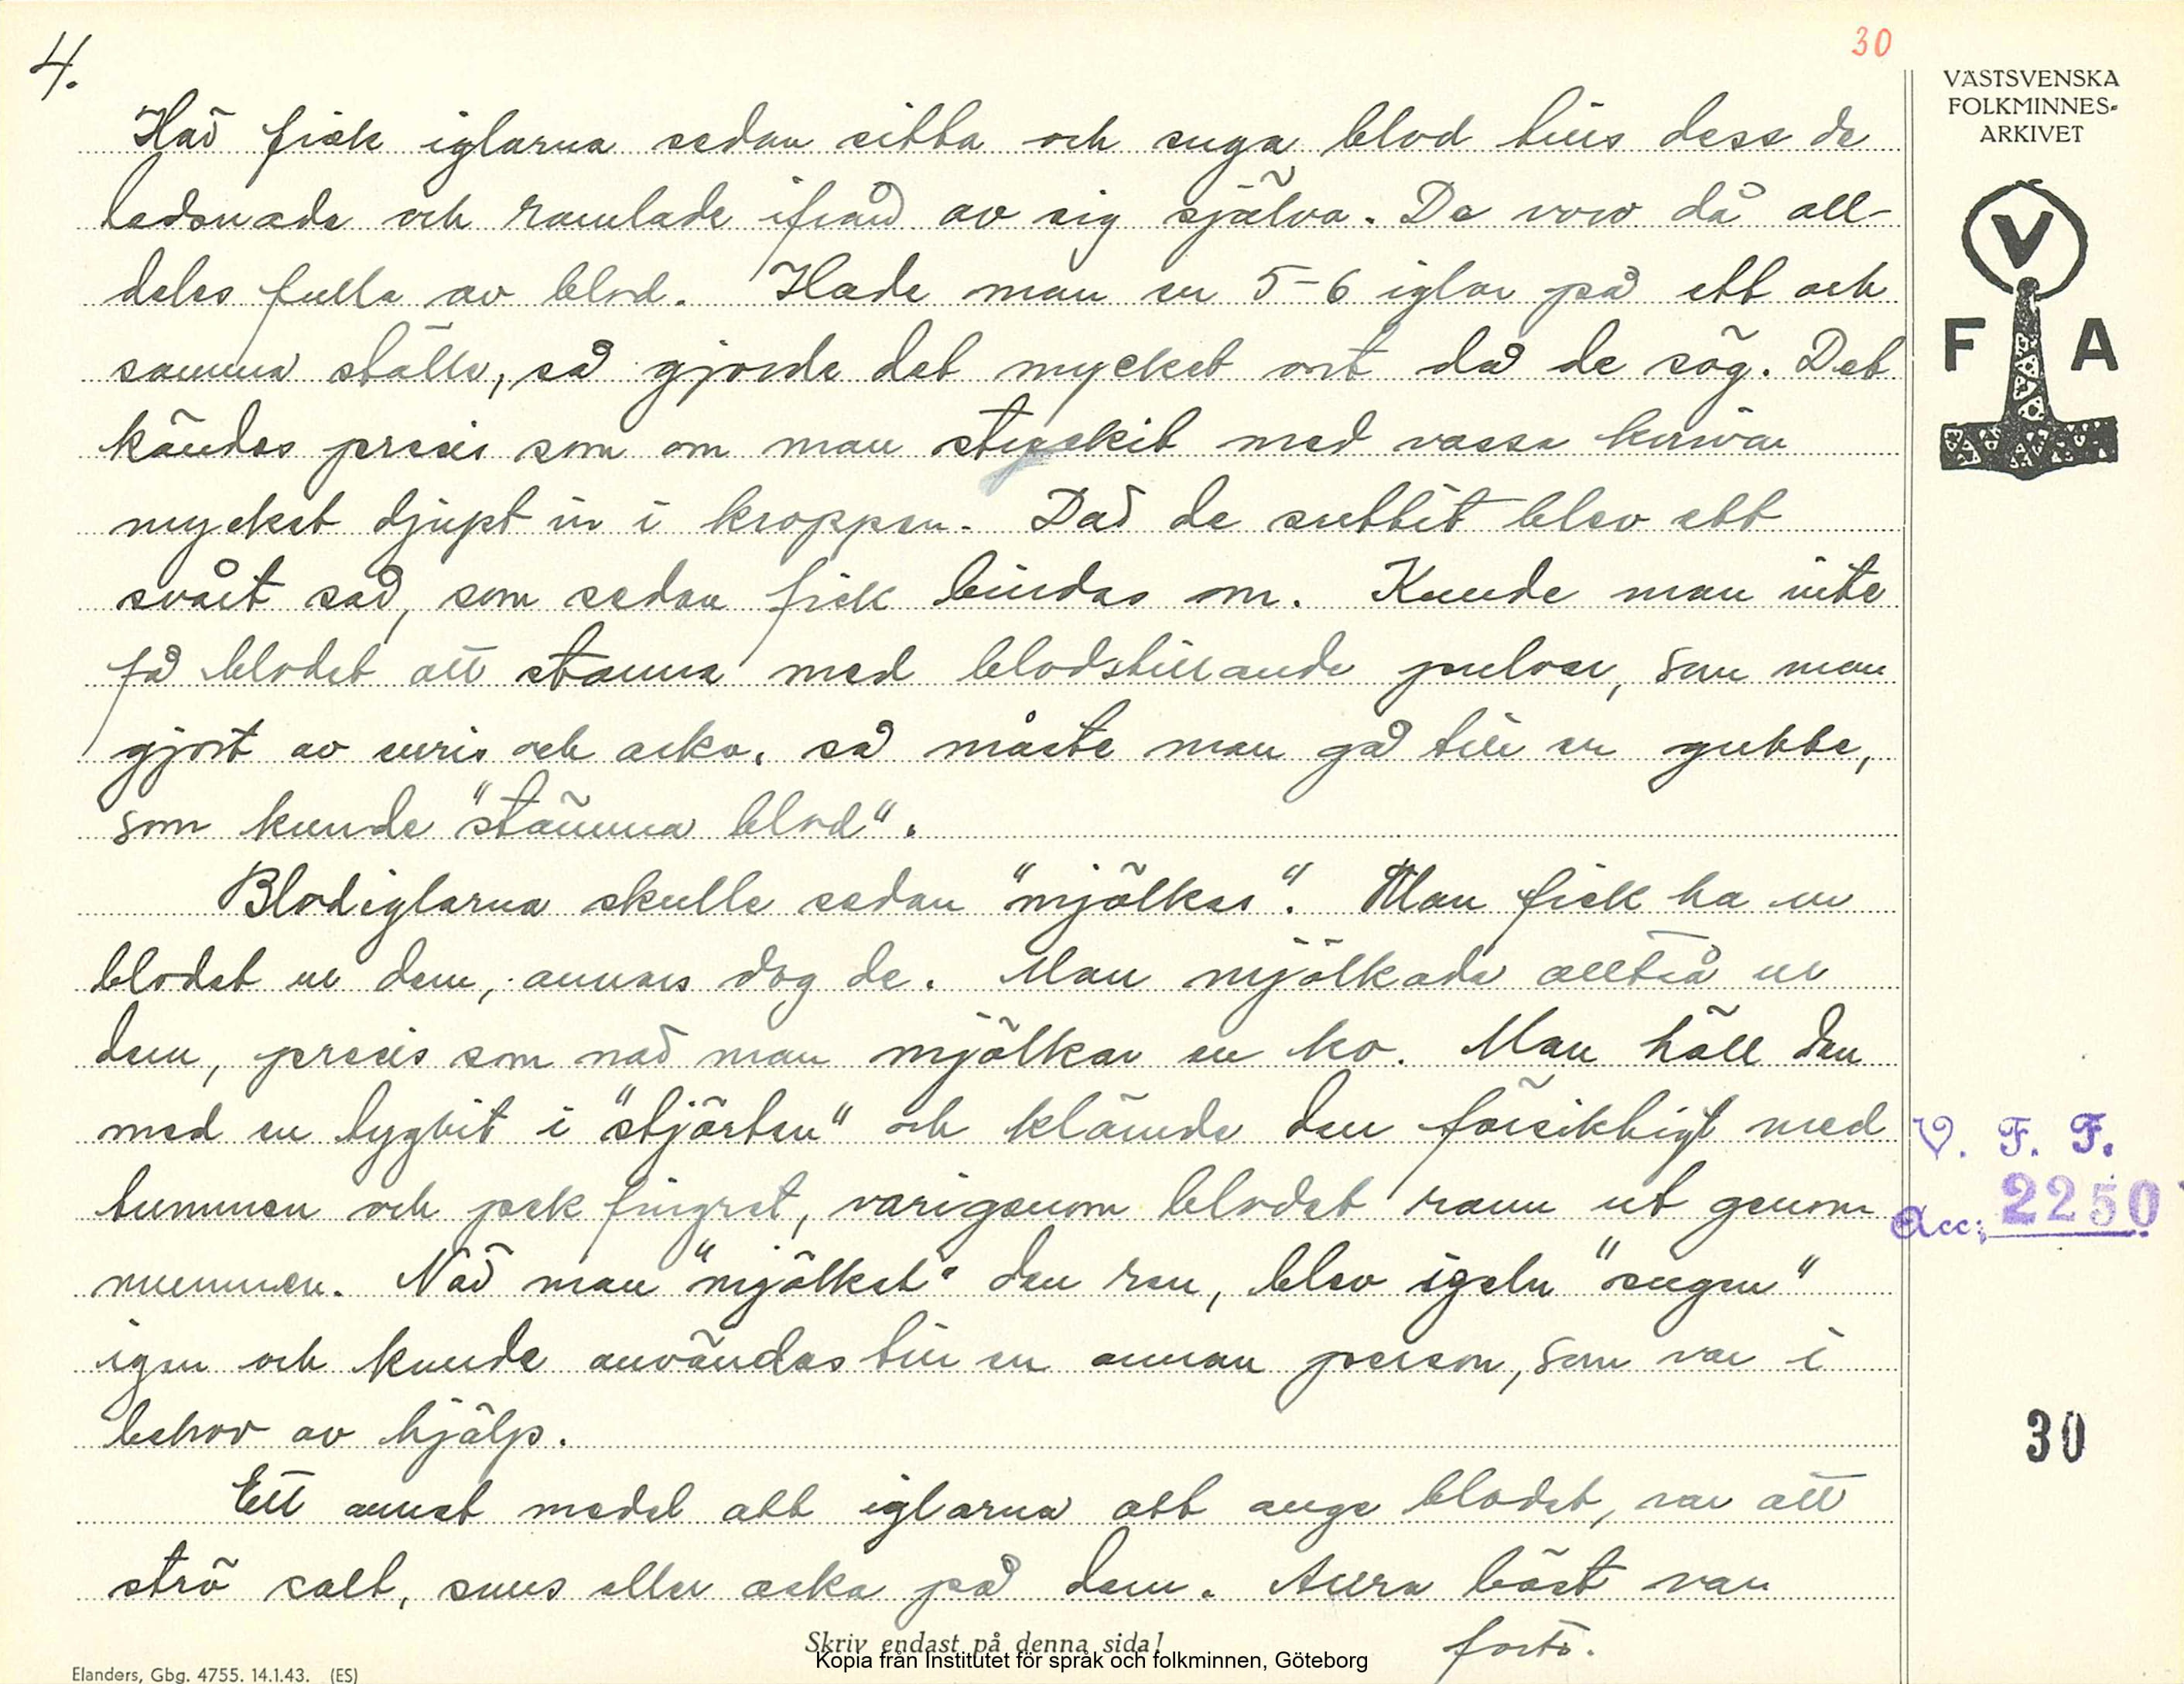 4.
30
VÄSTSVENSKA
FOLKMINNES-
ARKIVET
V
F A
Här fick iglarna sedan sitta och suga blod tills dess de
ledsnade och ramlade ifrån av sig själva. De voro då all-
deles fulla av blod. Hade man en 5-6 iglar på ett och
samma ställe, så gjorde det mycket ont då de sög. Det
kändes precis som om man stuckit med vassa knivar
mycket djupt in i kroppen. Där de suttit blev ett
svårt sår, som sedan fick bindas om. Kunde man inte
få blodet att stanna med blodstillande pulver, som man
gjort av snus och aska, så måste man gå till en gubbe,
som kunde "stämma blod".
Blodiglarna skulle sedan "mjölkas". Man fick ha ur
blodet ur dem, annars dog de. Man mjölkade alltså ur
dem, precis som när man mjölkar en ko. Man höll den
med en tygbit i "stjärten" och klämde den försiktigt med
tummen och pekfingret, varigenom blodet rann ut genom
munnen. När man "mjölkat" den ren, blev igeln "sugen"
igen och kunde användas till en annan person, som var i
behov av hjälp.
Ett annat medel att iglarna att suga blodet, var att
strö salt, snus eller aska på dem. Allra bäst var
forts.
V. F. F.
Acc: 2250
30
Skriv endast på denna sida!
Kopia från Institutet för språk och folkminnen, Göteborg
Elanders, Gbg. 4755. 14.1.43. (ES)